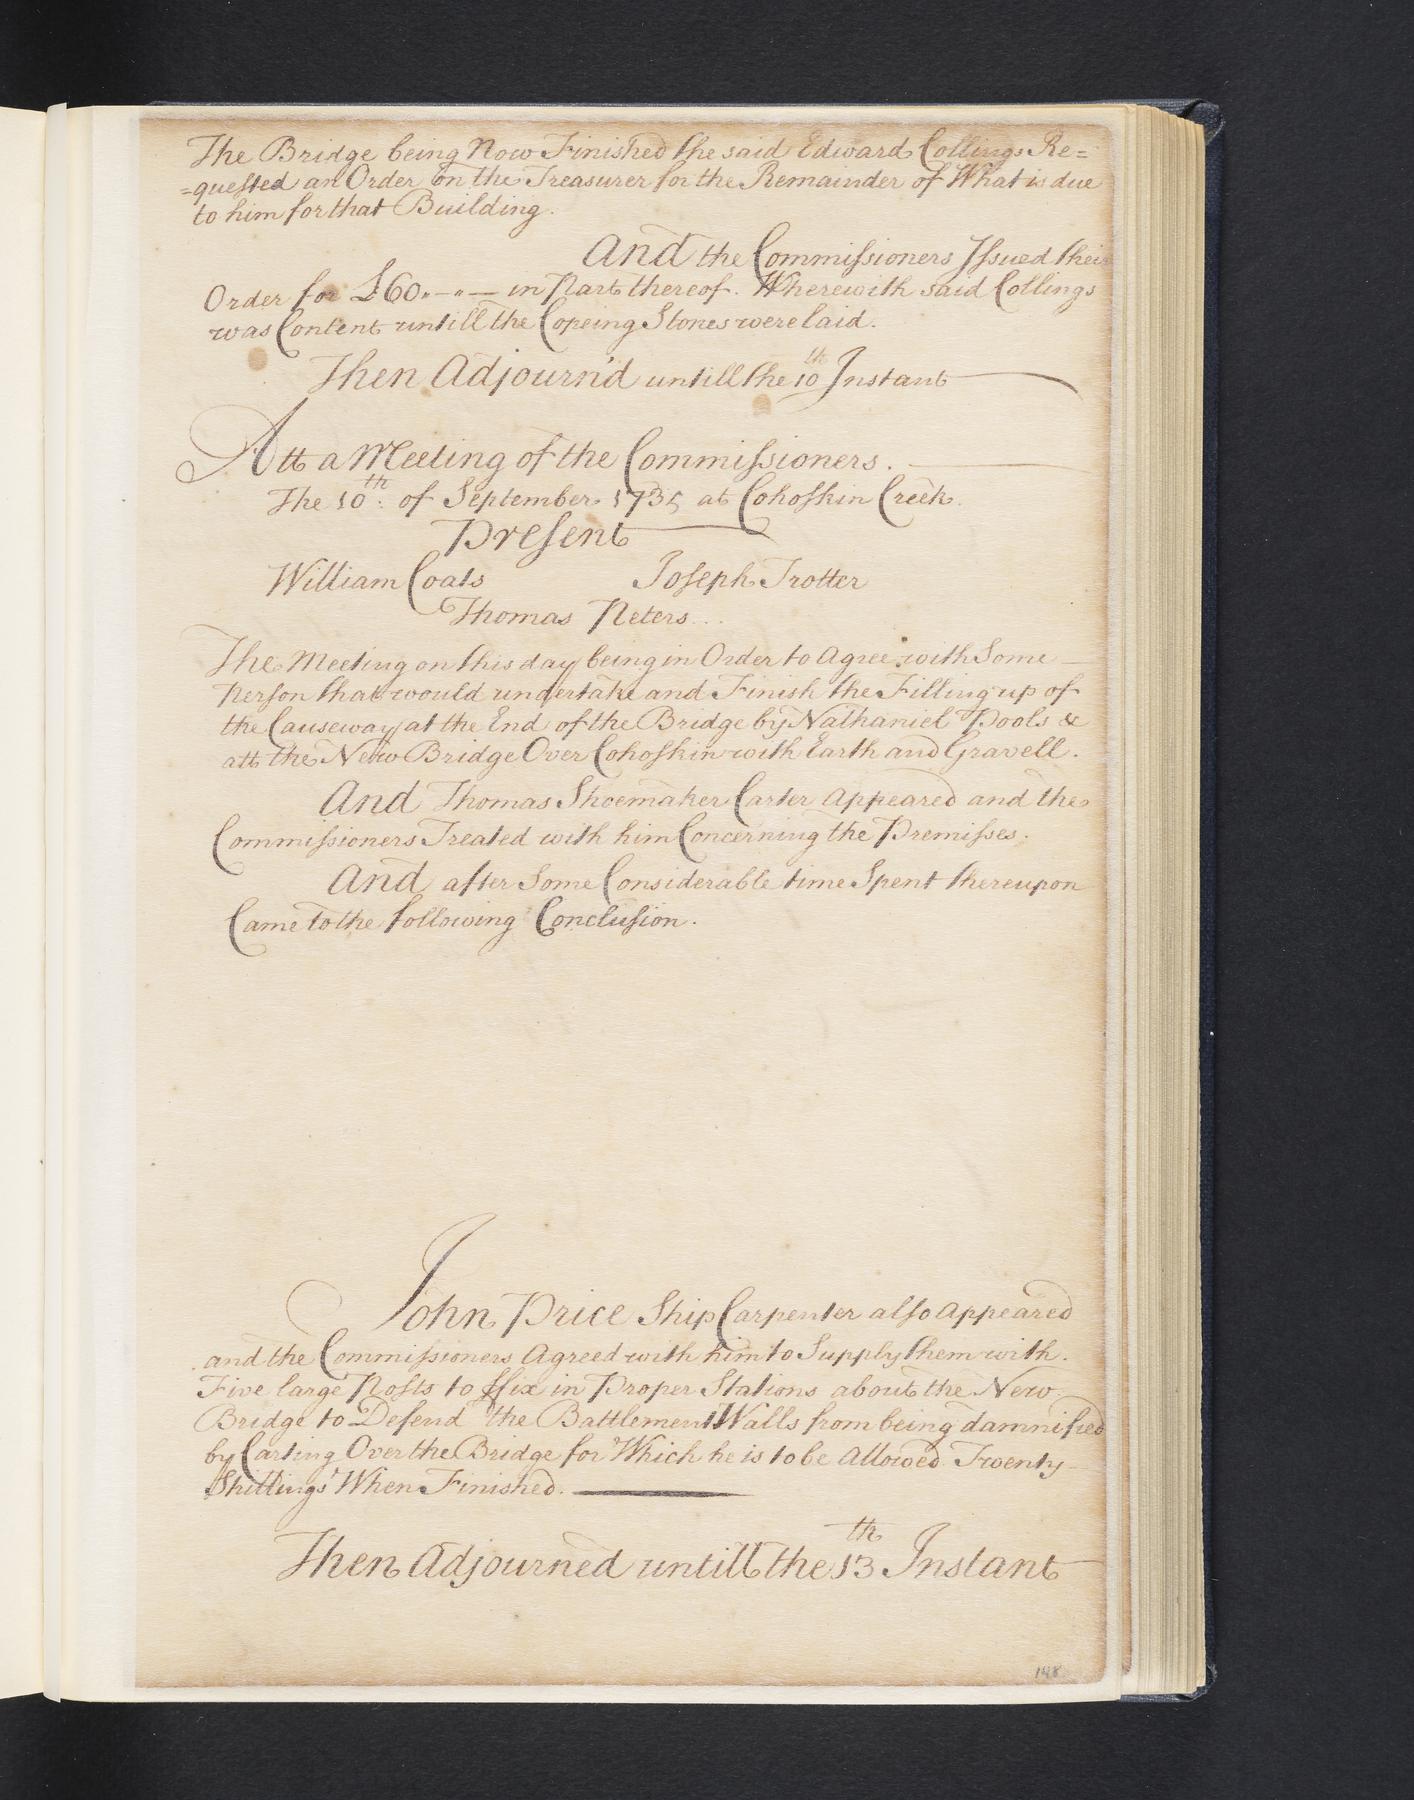 The Bridge being Now Finished the said Edward Collings Re=
=quested an Order on the Treasurer for the Remainder of What is due
to him for that Building.
And the Commissioners Issued their
Order for £60.-"- in Part thereof. Wherewith said Collings
was Content untill the Copeing Stones were laid.
Then Adjourn'd untill the 10th Instant
Att a Meeting of the Commissioners.
The 10th: of September 1735 at Cohoskin Creek.
Present
William Coats Joseph Trotter
Thomas Peters...
The Meeting on this day being in Order to Agree with Some
Person that would undertake and Finish the Filling up of
the Causeway at the End of the Bridge by Nathaniel Pools &
att the New Bridge Over Cohoskin with Earth and Gravell.
And Thomas Shoemaker Carter Appeared and the
Commissioners Treated with him Concerning the Premisses.
And after Some Considerable time Spent thereupon
Came to the following Conclusion.
John Price Ship Carpenter also Appeared
and the Commissioners Agreed with him to Supply them with
Five large Posts to ffix in Proper Stations about the New
Bridge to Defend the Battlement Walls from being damnified
by Carting Over the Bridge for Which he is to be Allowed Twenty
Shillings When Finished.
Then Adjourned untill the 13th Instant
148